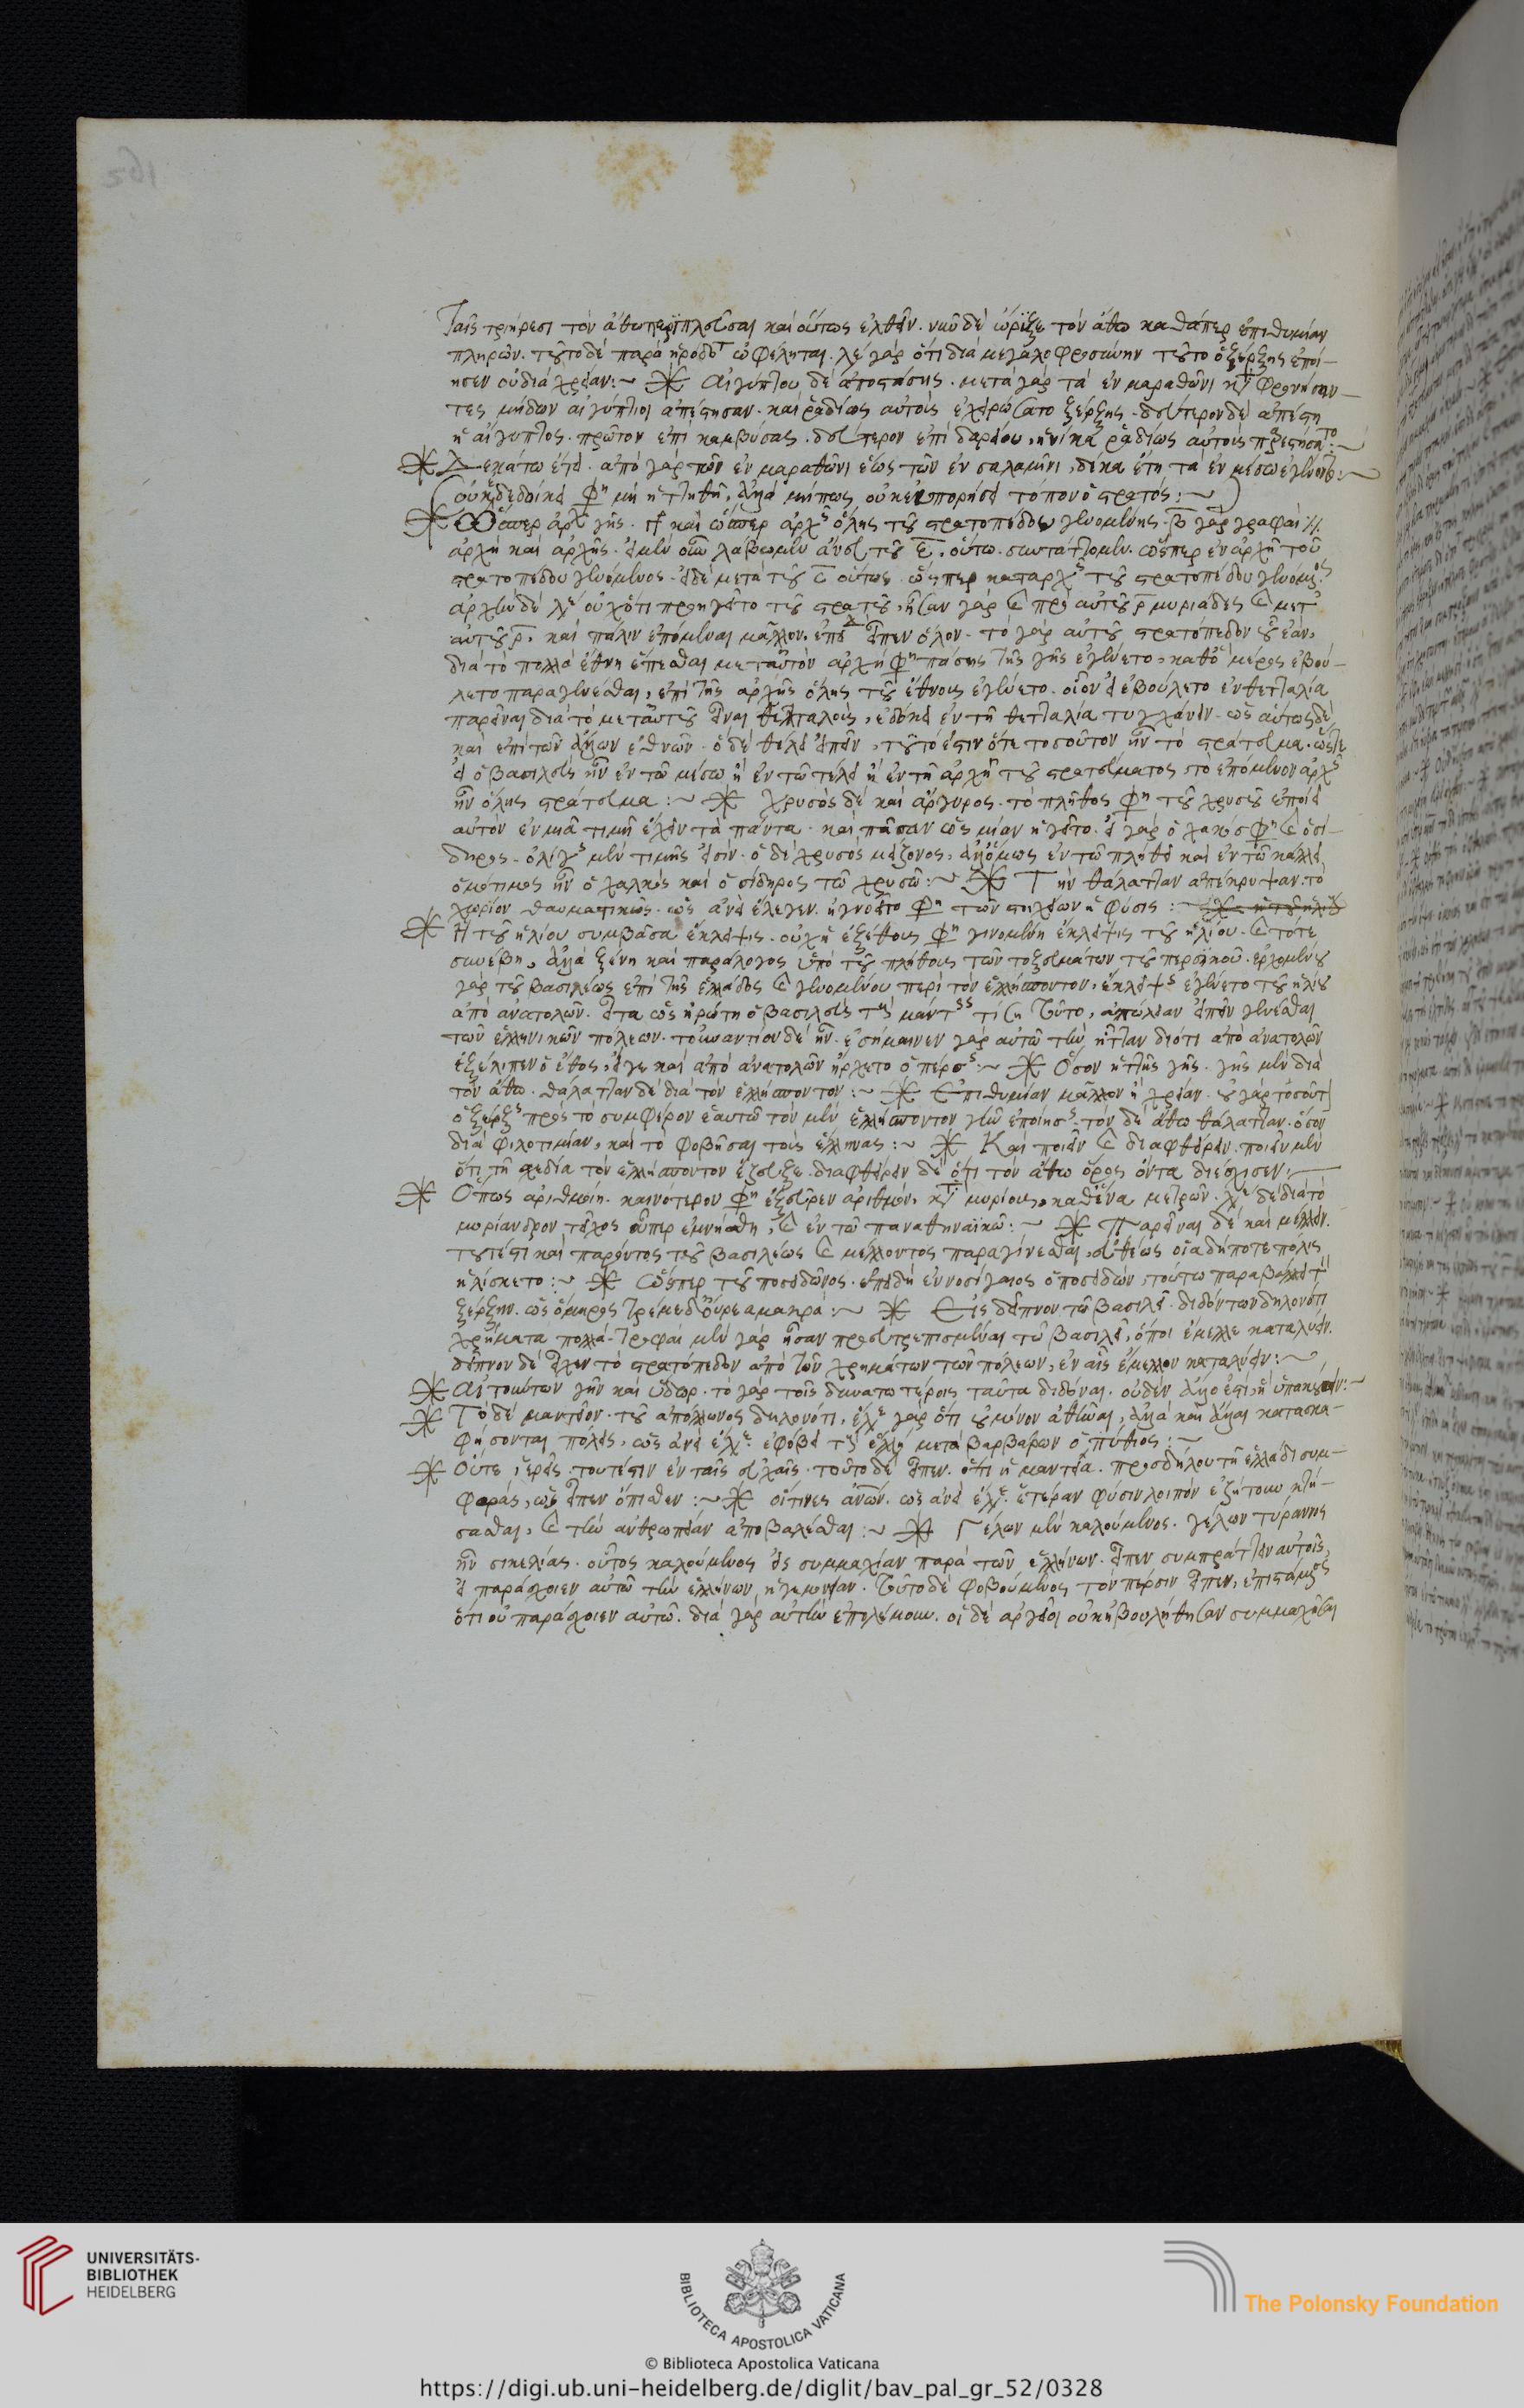 ταῖς τριήρεσι τὸν ἄθω περιπλεῦσαι καὶ οὕτως ἐλθεῖν. νῦν δὲ ὤρυξε τὸν ἄθω καθάπερ ἐπιθυμίαν
πληρῶν. τοῦτο δὲ παρὰ ἡροδότ ὠφέληται. λέγ γὰρ ὅτι διὰ μεγαλοφροσύνην τοῦτο ὁ ξέρξης ἐποί-
ησεν οὐ διὰ χρείαν: ~ Αἰγύπτου δὲ ἀποστάσης. μετὰ γὰρ τὰ ἐν μαραθῶνι φρονήσαν-
τες μήδων αἰγύπτιοι ἀπέστησαν. καὶ ῥαδίως αὐτοὺς ἐχειρώσατο ξέρξης. δεύτερον δὲ ἀπέστη
ἡ αἴγυπτος. πρῶτον ἐπὶ καμβύσας. δεύτερον ἐπὶ δαρείου, ἡνίκα ῥαδίως αὐτοὺς
Δεκάτω ἔτει. ἀπὸ γὰρ τῶν ἐν μαραθῶνι ἕως τῶν ἐν σαλαμῖνι, δέκα ἔτη τὰ ἐν μέσω ἐγένοντο: ~
(οὐκ ἐδεδοίκει φη μὴ ἡττηθῆ, ἀλλὰ μήπως οὐκ εὐπορήσει τόπον ὁ στρατός: ~)
Ὥσπερ ἀρχ γῆς. καὶ ὥσπερ ἀρχ ὅλης τοῦ στρατοπέδου γενομένης. β γὰρ γραφαὶ
ἀρχὴ καὶ ἀρχῆς. εἰ μὲν οὖν λάβωμεν ἄνευ τοῦ ς, οὕτω συντάττομεν. ὥσπερ ἐν ἀρχῆ τοῦ
στρατοπέδου γενόμενος. εἰ δὲ μετὰ τοῦ ς οὕτως. ὥσπερ καταρχ τοῦ στρατοπέδου γενομέν
ἀρχὴν δὲ λέγ οὐχ ὅτι προηγεῖτο τοῦ στρατοῦ, ἦσαν γὰρ καὶ πρὸ αὐτοῦ ρ μυριάδες καὶ μετ
αὐτοῦ ρ. καὶ πάλιν ἑπόμεναι μᾶλλον. ἐπεὶ εἶπεν ὅλον. τὸ γὰρ αὐτοῦ στρατόπεδον
διὰ τὸ πολλὰ ἔθνη ἕπεσθαι μεταὐτὸν ἀρχὴ φη πάσης τῆς γῆς ἐγένετο. καθὸ μέρος ἐβού-
λετο παραγενέσθαι, ἐπὶ τῆς ἀρχῆς ὅλης τοῦ ἔθνους ἐγένετο. οἷον εἰ ἐβούλετο ἐν θετταλία
παρεῖναι διὰ τὸ μεταὐτοῦ εἶναι θετταλοὺς, ἐδόκει ἐν τῆ θετταλία τυγχάνειν. ὡς αὕτως δὲ
καὶ ἐπὶ τῶν ἄλλων ἐθνῶν. ὃ δὲ θέλει εἰπεῖν, τοῦτό ἐστιν ὅτι τοσοῦτον ἦν τὸ στράτευμα. ὥστε
εἰ ὁ βασιλεὺς ἦν ἐν τῶ μέσω ἢ ἐν τῶ τέλει ἢ ἐν τῆ ἀρχῆ τοῦ στρατεύματος, τὸ ἑπόμενον ἀρχ
ἦν ὅλης στράτευμα: ~ Χρυσὸς δὲ καὶ ἄργυρος. τὸ πλῆθος φη τοῦ χρυσοῦ ἐποίει
αὐτὸν ἐν μιᾶ τιμῆ ἔχειν τὰ πάντα. καὶ πᾶσαν ὡς μίαν ἡγεῖτο. εἰ γὰρ ὁ χαλκός φη καὶ ὁ σί-
δηρος. ὀλίγ μὲν τιμῆς εἰσίν. ὁ δὲ χρυσὸς μείζονος, ἀλλ' ὅμως ἐν τῶ πλήθει καὶ ἐν τῶ κάλλει
ὁμότιμος ἦν ὁ χαλκὸς καὶ ὁ σίδηρος τῶ χρυσῶ: ~ Τὴν θάλατταν ἀπέκρυψαν. τὸ
χωρίον θαυμαστικῶς. ὡς ἀνεὶ ἔλεγεν. ἠγνοεῖτο φη τῶν στοιχείων ἡ φύσις: ~
Ἡ τοῦ ἡλίου συμβᾶσα ἔκλειψις. οὐχ ἡ ἐξ ἔθους φη γινομένη ἔκλειψις τοῦ ἡλίου. καὶ τότε
συνέβη, ἀλλὰ ξένη καὶ παράλογος ὑπὸ τοῦ πλήθους τῶν τοξευμάτων τοῦ περσικοῦ. ἐρχομένου
γὰρ τοῦ βασιλέως ἐπὶ τῆς ἑλλάδος καὶ γενομένου περὶ τὸν ἑλλήσποντον, ἔκλειψς ἐγένετο τοῦ ἡλίου
ἀπὸ ἀνατολῶν. εἶτα ὡς ἠρώτη ὁ βασιλεὺς τοὺς μάντεις τί τοῦτο, ἀπώλειαν εἶπον γενέσθαι
τῶν ἑλληνικῶν πόλεων. τοὐναντίον δὲ ἦν. ἐσήμαινεν γὰρ αὐτῶ τὴν ἧτταν διότι ἀπὸ ἀνατολῶν
ἐξέλιπεν ὁ ἔθος, εἴγε καὶ ἀπὸ ἀνατολῶν ἤρχετο ὁ πέρσς: ~ Ὅσον ἧττης γῆς. γῆς μὲν διὰ
τὸν ἄθω. θάλατταν δὲ διὰ τὸν ἑλλήσποντον: ~ Ἐπιθυμίαν μᾶλλον ἢ χρείαν. οὐ γὰρ τοσοῦτ
ὁ ξέρξς πρὸς τὸ συμφέρον ἑαυτῶ τὸν μὲν ἑλλήσποντον γῆν ἐποίησε. τὸν δὲ ἄθω θάλατταν. ὅσον
διὰ φιλοτιμίαν, καὶ τὸ φοβῆσαι τοὺς ἕλληνας: ~ Καὶ ποιεῖν καὶ διαφθείρειν. ποιεῖν μὲν
ὅτι τῆ σχεδία τὸν ἑλλήσποντον ἔζευξε. διαφθείρειν δὲ ὅτι τὸν ἄθω ὄρος ὄντα διέσχισεν: ~
Ὅπως ἀριθμοίη. καινότερον φη ἐξεῦρεν ἀριθμόν, μυρίους, καθένα μετρῶν. λέγ δὲ διὰ τὸ
μυρίανδρον τεῖχος οὗπερ ἐμνήσθη, καὶ ἐν τῶ παναθηναϊκῶ: ~ Παρεῖναι δὲ καὶ μέλλειν.
τουτέστι καὶ παρόντος τοῦ βασιλέως καὶ μέλλοντος παραγίνεσθαι, εὐθέως οἱαδήποτε πόλις
ἡλίσκετο: ~ Ὥσπερ τοῦ ποσειδῶνος. ἐπειδὴ ἐννοσίγαιος ὁ ποσειδῶν, τούτω παραβάλλει τὸν
ξέρξην. ὡς ὅμηρος τρέμε δ' οὔρεα μακρά: ~ Εἰς δεῖπνον τῶ βασιλεῖ. διδόντων δηλονότι
χρήματα πολλά. τροφαὶ μὲν γὰρ ἦσαν προευτρεπισμέναι τῶ βασιλεῖ, ὅποι ἔμελλε καταλύειν.
δεῖπνον δὲ εἶχεν τὸ στρατόπεδον ἀπὸ τῶν χρημάτων τῶν πόλεων, ἐν αἷς ἔμελλον καταλύειν: ~
Αἰτούντων γῆν καὶ ὕδωρ. τὸ γὰρ τοῖς δυνατωτέροις ταῦτα διδόναι. οὐδὲν ἄλλο ἐστὶν ἢ ὑπακούειν: ~
Τὸ δὲ μαντεῖον. τοῦ ἀπόλλωνος δηλονότι, ἔλεγε γὰρ ὅτι οὐ μόνον ἀθῆναι, ἀλλὰ καὶ ἄλλαι κατασκα-
φήσονται πόλεις, ὡς ἀνεὶ ἔλεγε. ἐφόβει τοὺς ἕλλη μετὰ βαρβάρων ὁ πύθιος: ~
Οὔτε ἱερὰς. τουτέστιν ἐν ταῖς εὐχαῖς. τοῦτο δὲ εἶπεν. ὅτι ἡ μαντεία. προσδήλου τῆ ἑλλάδι συμ-
φοράς, ὡς εἶπεν ὄπισθεν: ~ οἵτινες ἀνῶν. ὡς ἀνεὶ ἔλεγε. ἑτέραν φύσιν λοιπὸν ἐζήτουν κτή-
σασθαι, καὶ τὴν ἀνθρωπείαν ἀποβαλέσθαι: ~ Γέλων μὲν καλούμενος. γέλων τύραννος
ἦν σικελίας. οὗτος καλούμενος εἰς συμμαχίαν παρὰ τῶν ἑλλήνων. εἶπεν συμπράττειν αὐτοῖς,
εἰ παράσχοιεν αὐτῶ τὴν ἑλλήνων ἡγεμονίαν. τοῦτο δὲ φοβούμενος τὸν πέρσην εἶπεν, ἐπιστάμενος
ὅτι οὐ παράσχοιεν αὐτῶ. διὰ γὰρ αὐτὴν ἐπολέμουν. οἱ δὲ ἀργεῖοι οὐκ ἠβουλήθησαν συμμαχῆσαι
UNIVERSITÄTS-
BIBLIOTHEK
HEIDELBERG
BIBLIOTECA APOSTOLICA VATICANA
The Polonsky Foundation
© Biblioteca Apostolica Vaticana
https://digi.ub.uni-heidelberg.de/diglit/bav_pal_gr_52/0328